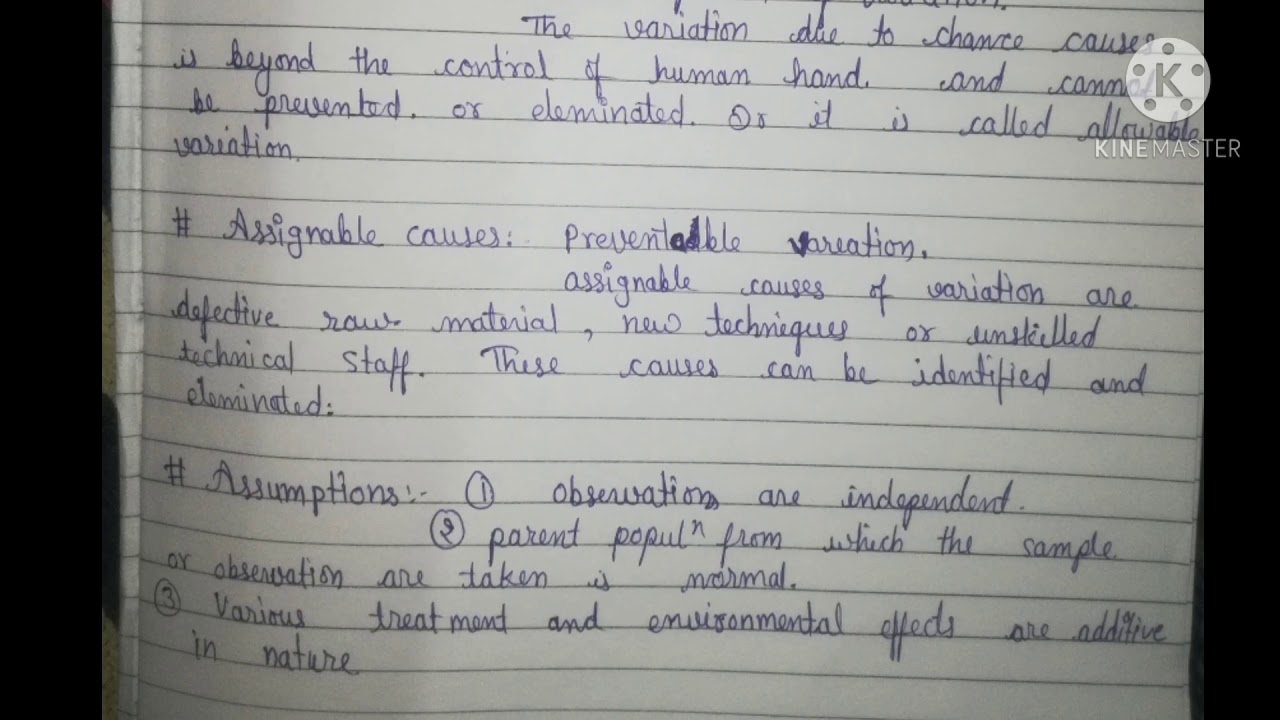 The variation due to chance causes
is beyond the control of human hand. and cannot
be prevented. or eleminated. Or it is called allowable
variation.
# Assignable causes:. Preventable vareation.
assignable causes of variation are
defective raw material, new techneques or unskilled
technical staff. These causes can be identified and
eleminated:
# Assumptions:- ① observations are independent.
② parent populⁿ from which the sample
or observation are taken is normal.
③ Various treatment and environmental effects are additive
in nature
K
KINEMASTER